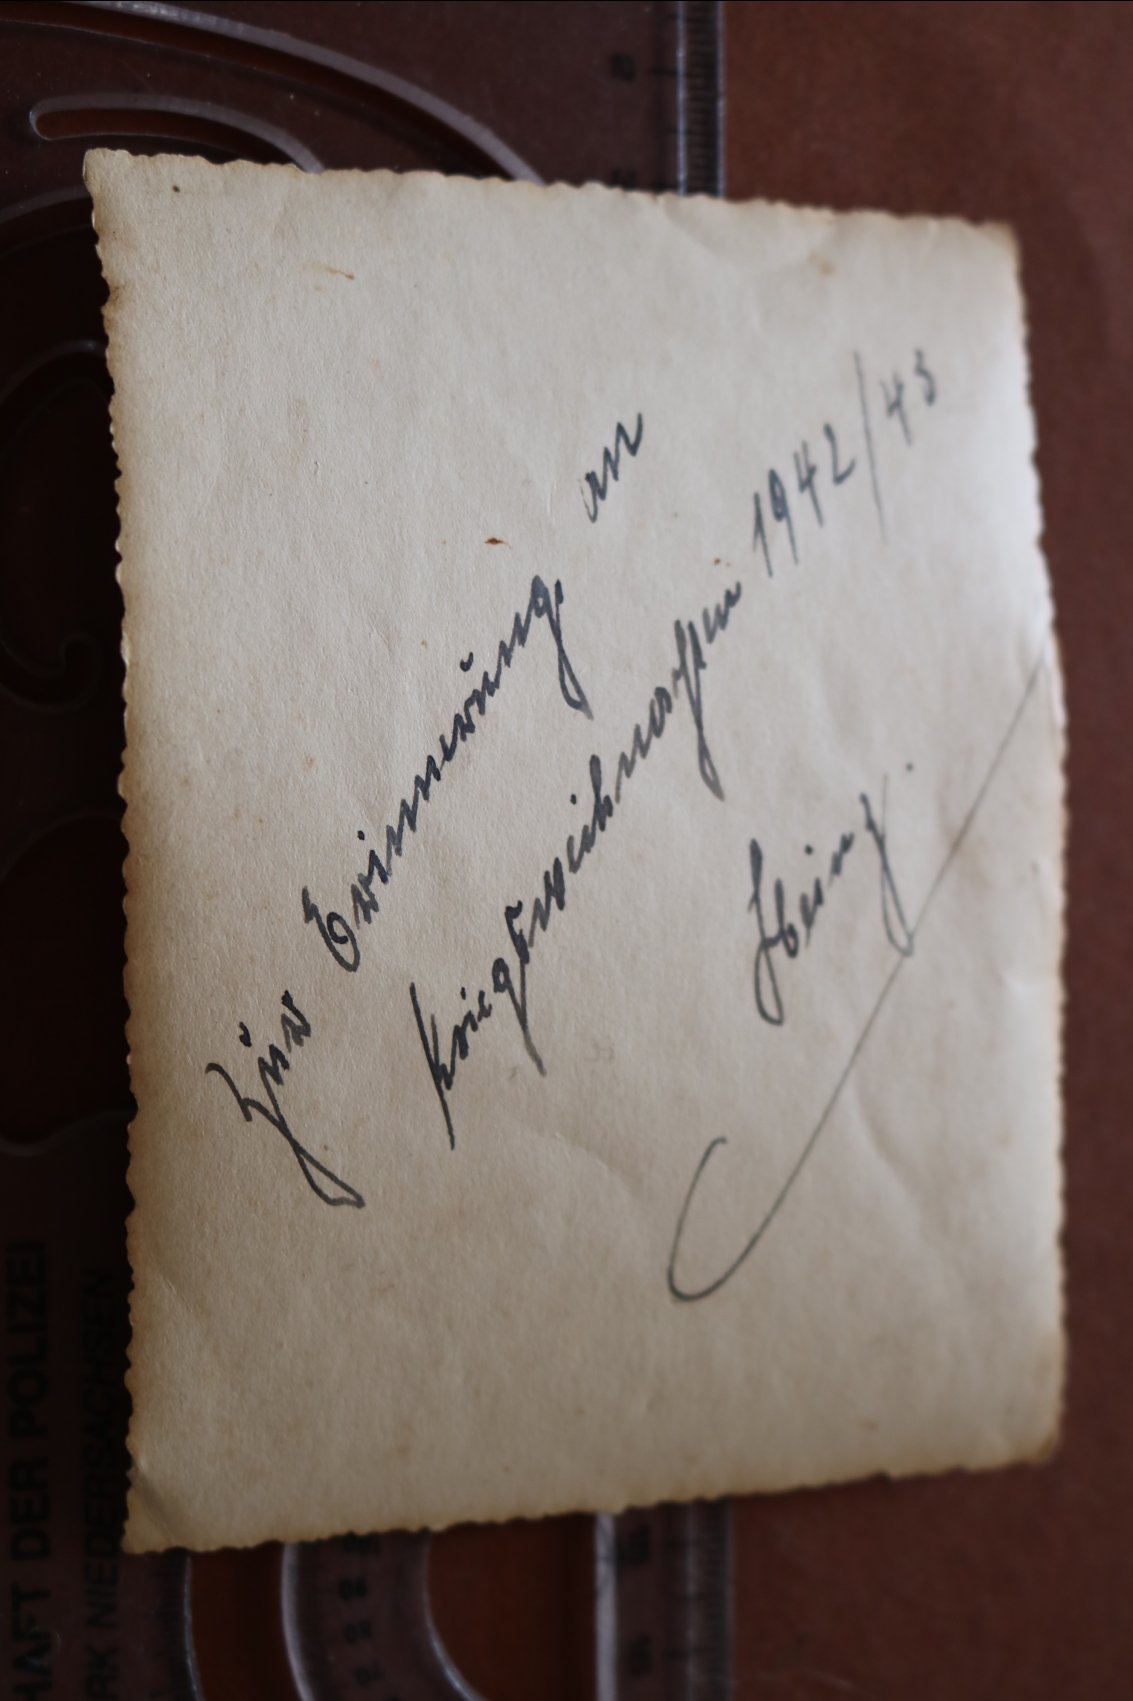 Zur Erinnerung an
Kriegsweihnachten 1942/43
Heinz.
HAFT DER POLIZEI
RK NIEDERSACHSEN